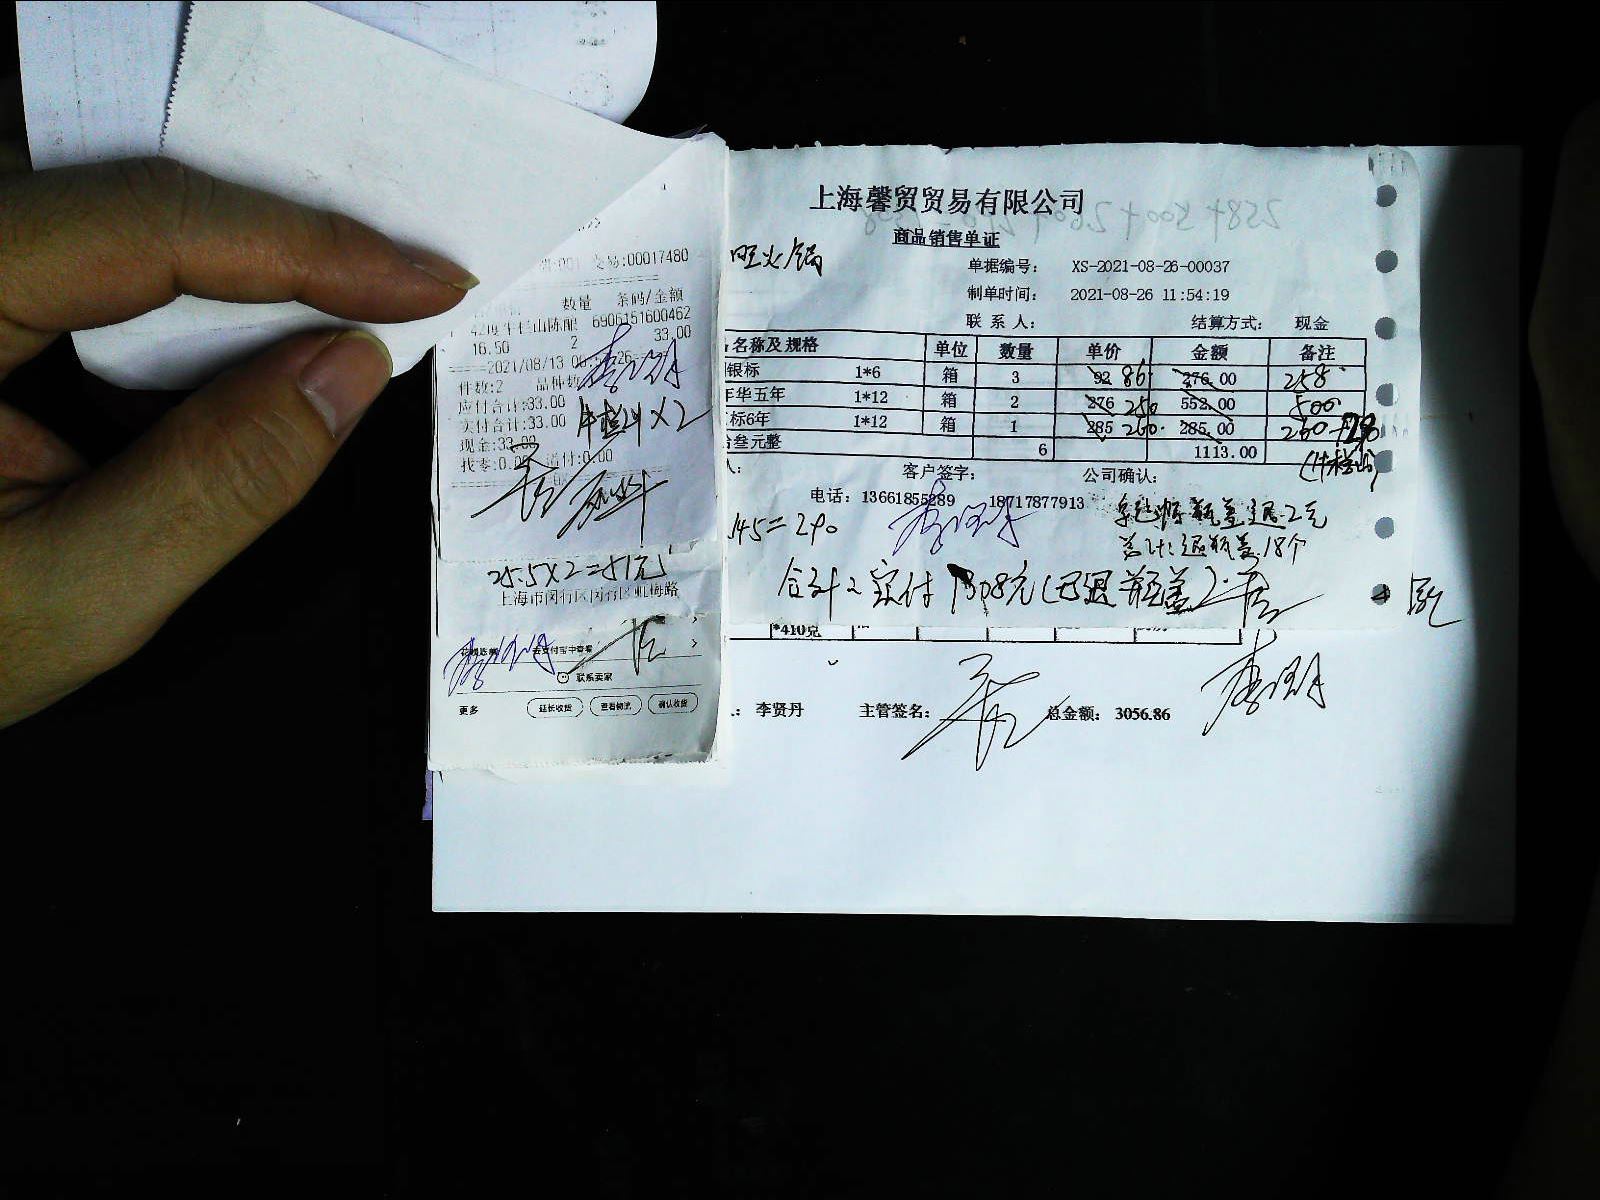 交易:00017480
数量 条码/金额
山陈酿 6906151600462
16.50 2 33.00
2021/08/13
件数:2 品种数
应付合计:33.00
实付合计:33.00
牛栏山×2
现金:33.00
找零:0.00
25.5×2=51元
上海市闵行区闵行区虹梅路
去支付宝中查看
联系卖家
更多 延长收货 查看物流 确认收货
上海馨贸贸易有限公司
商品销售单证
旺火锅
单据编号: XS-2021-08-26-00037
制单时间: 2021-08-26 11:54:19
联系人: 结算方式: 现金
名称及规格 单位 数量 单价 金额 备注
银标 1*6 箱 3 92 86 276.00 258
年华五年 1*12 箱 2 276 250 552.00 500
标6年 1*12 箱 1 285 260 285.00 260
拾叁元整 6 1113.00
客户签字: 公司确认:
电话: 13661855289 18717877913
145=290
退2元
18个
合计: 实付 1308元(已退瓶盖)
*410克
李贤丹 主管签名: 总金额: 3056.86